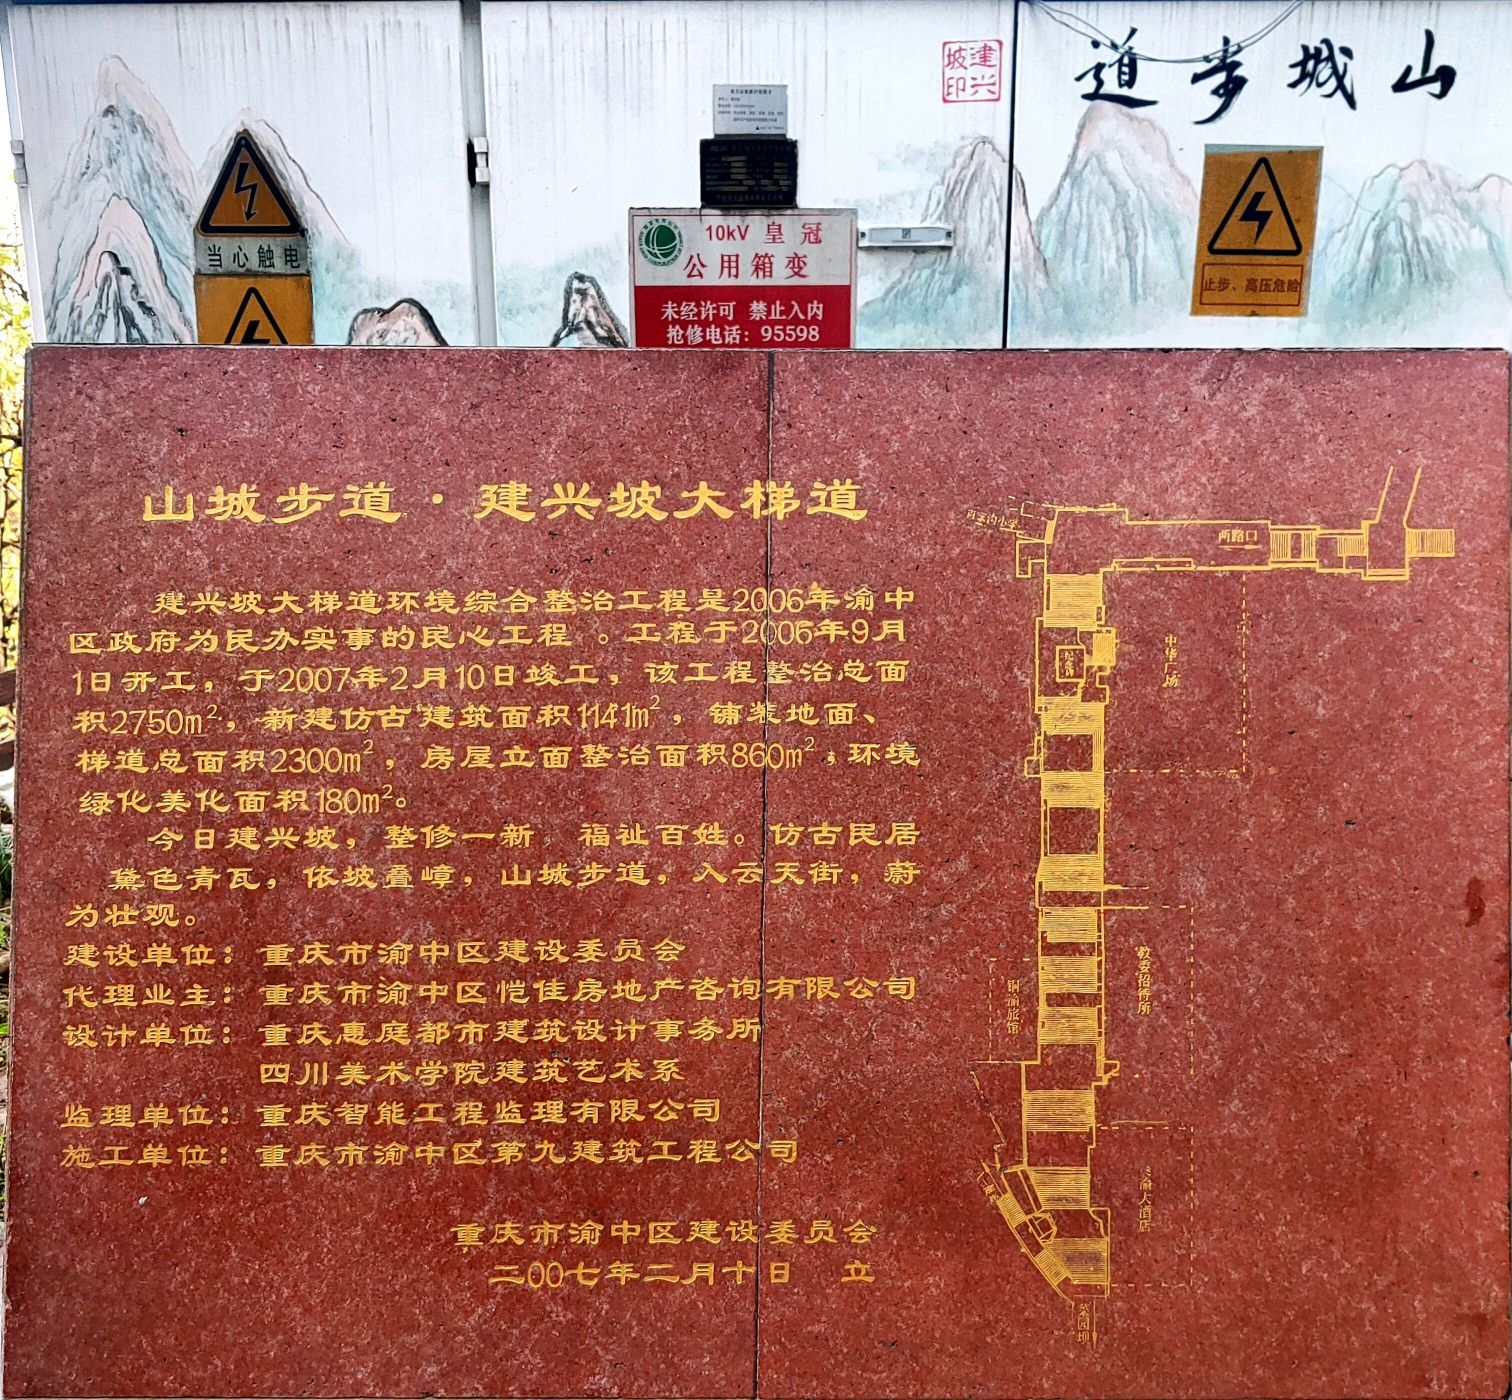 山城步道
建兴
坡印
当心触电
10kV 皇冠
公用箱变
未经许可 禁止入内
抢修电话：95598
止步、高压危险
山城步道·建兴坡大梯道
建兴坡大梯道环境综合整治工程是2006年渝中
区政府为民办实事的民心工程 。工程于2006年9月
1日开工，于2007年2月10日竣工，该工程整治总面
积2750m²，新建仿古建筑面积1141m²，铺装地面、
梯道总面积2300m²，房屋立面整治面积860m²，环境
绿化美化面积180m²。
今日建兴坡，整修一新 福祉百姓。仿古民居
黛色青瓦，依坡叠嶂，山城步道，入云天街，蔚
为壮观。
建设单位：重庆市渝中区建设委员会
代理业主：重庆市渝中区恺佳房地产咨询有限公司
设计单位：重庆惠庭都市建筑设计事务所
四川美术学院建筑艺术系
监理单位：重庆智能工程监理有限公司
施工单位：重庆市渝中区第九建筑工程公司
重庆市渝中区建设委员会
二00七年二月十日 立
两路口
中华广场
教委招待所
铜渝旅馆
渝大酒店
菜园坝